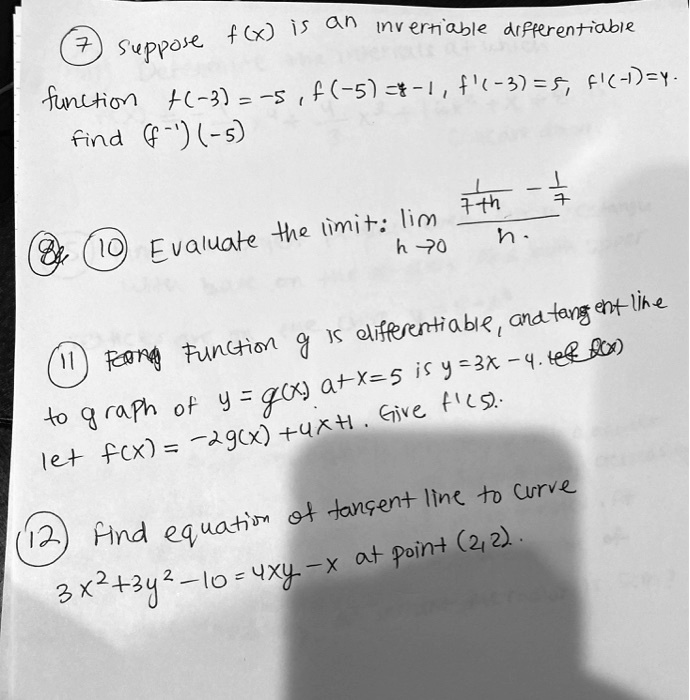 7 Suppose f(x) is an invertiable differentiable
function f(-3) = -5 , f(-5) = -1 , f'(-3) = 5, f'(-1) = 4.
find (f⁻¹)(-5)
10 Evaluate the limit: lim h→0 (1/(7+h) - 1/7)/h.
11 Function g is differentiable, and tangent line
to graph of y = g(x) at x=5 is y = 3x - 4.
let f(x) = -2g(x) + 4x+1. Give f'(5).
12 find equation of tangent line to curve
3x²+3y²-10 = 4xy - x at point (2,2).